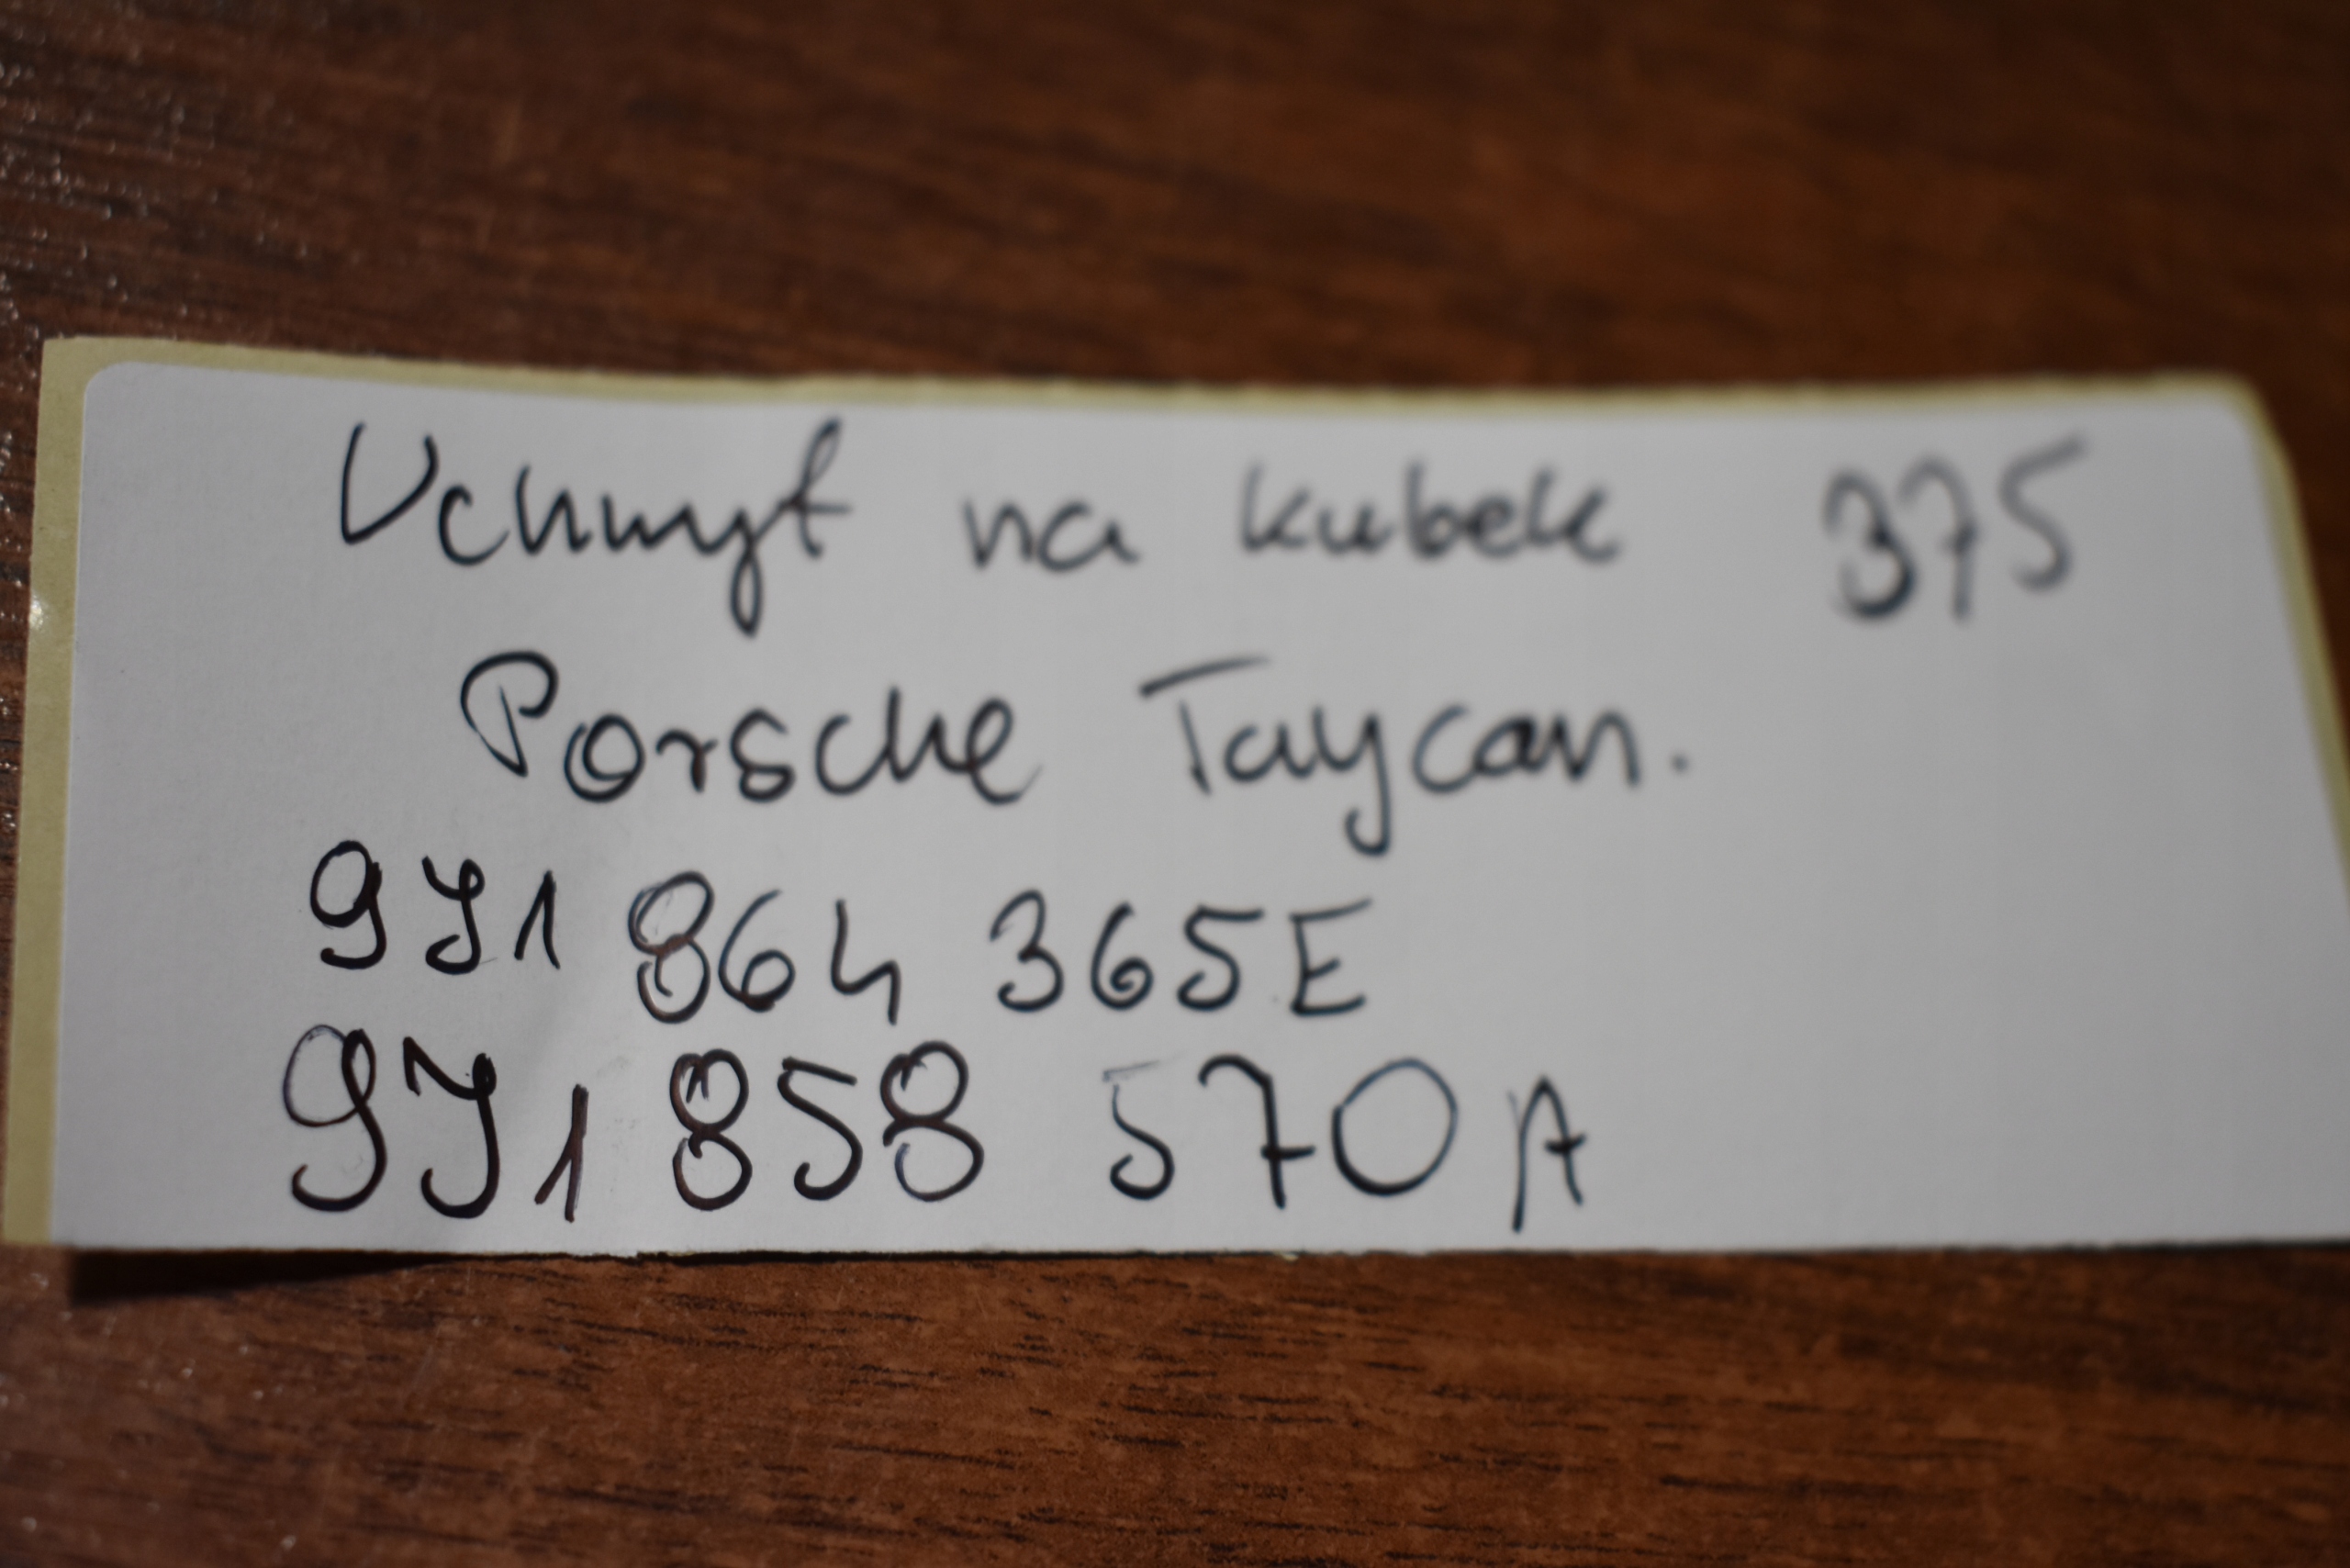 Uchwyt na kubek 375
Porsche Taycan.
9J1 864 365E
9J1 858 570A